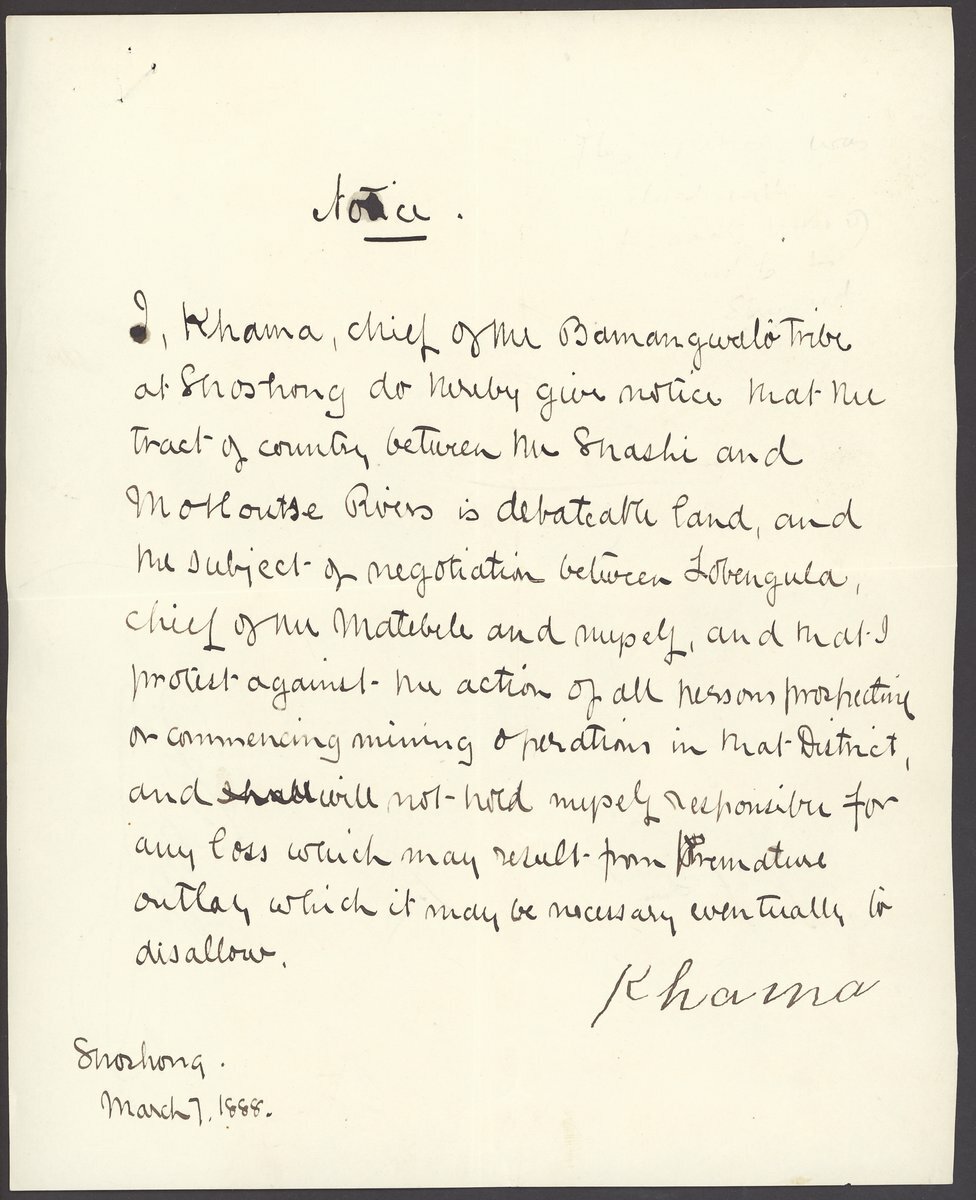 Notice.
I, Khama, chief of the Bamangwato tribe
at Shoshong do hereby give notice that the
tract of country between the Shashi and
Motloutse Rivers is debateable land, and
the subject of negotiation between Lobengula,
chief of the Matebele and myself, and that I
protest against the action of all persons prospecting
or commencing mining operations in that District,
and shall will not hold myself responsible for
any loss which may result from premature
outlay which it may be necessary eventually to
disallow.
Khama
Shoshong.
March 7. 1888.